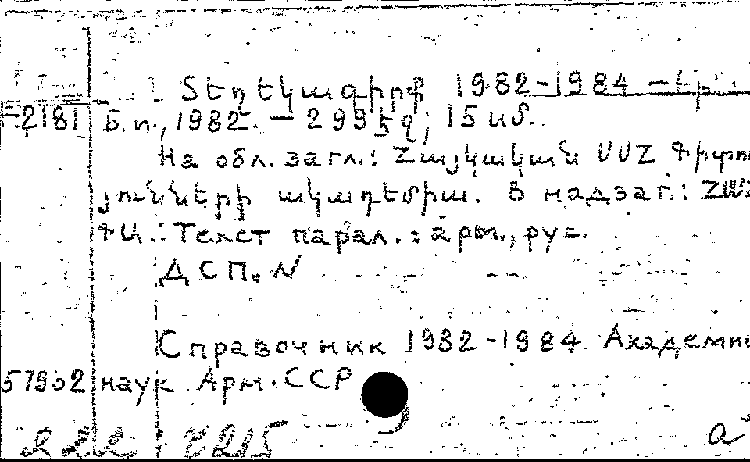 Տեղեկագիրք 1982-1984 — Եր.
F-2181 Б.п., 1982. — 299 էջ; 15 սմ.
На обл. загл.: Հայկական ՍՍՀ Գիտու
յունների ակադեմիա. В надзаг.: ՀՍՍՀ
ԳԱ. Текст парал.: арм., рус.
ДСП. N
Справочник 1982-1984 Академии
наук Арм. ССР